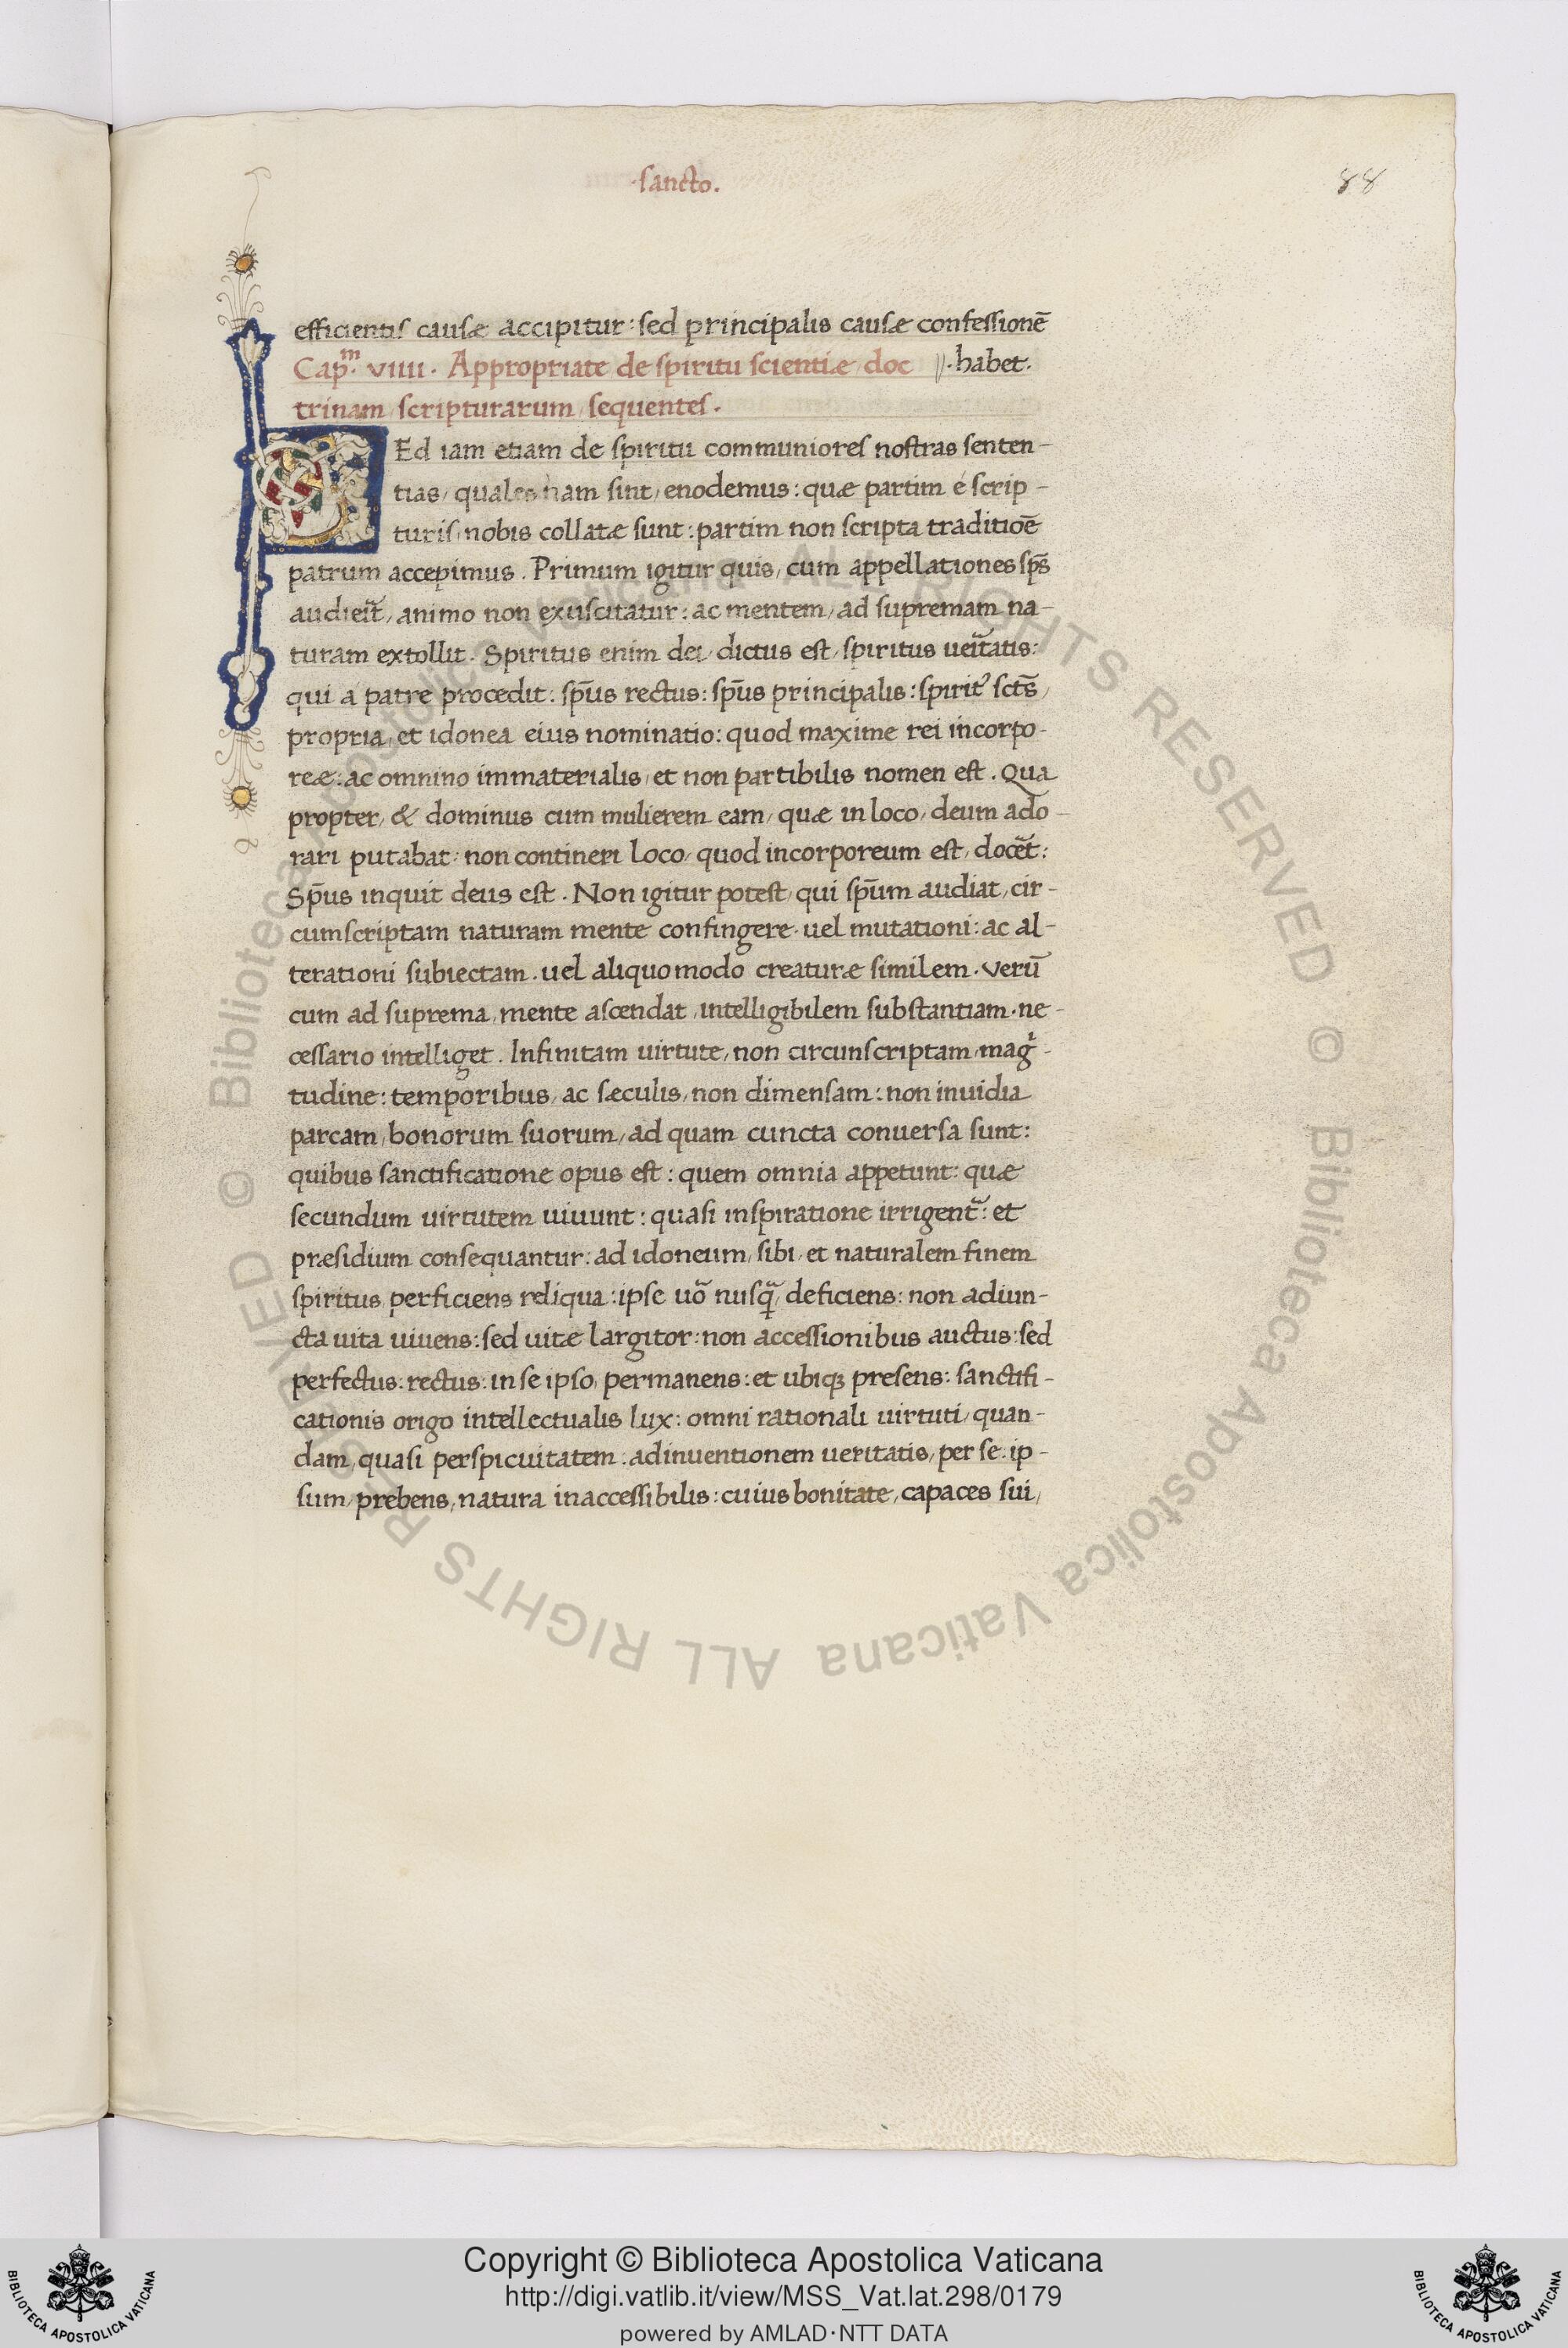 ·sancto.
88
efficientis causæ accipitur: sed principalis causæ confessionē
Cap.ᵐ VIIII. Appropriate de spiritu scientiæ doc ||·habet.
trinam scripturarum sequentes.
SEd iam etiam de spiritu communiores nostras senten-
tias, quales nam sint, enodemus: quæ partim é scrip-
turis, nobis collatæ sunt: partim non scripta traditiōe
patrum accepimus. Primum igitur quis, cum appellationes sp̄s
audieit̃, animo non exuscitatur: ac mentem, ad supremam na-
turam extollit. Spiritus enim dei, dictus est, spiritus ueit̃atis:
qui á patre procedit: sp̄us rectus: sp̄us principalis: spiritꝰ sct̄s,
propria, et idonea eius nominatio: quod maxime rei incorpo-
reæ: ac omnino immaterialis, et non partibilis nomen est. Qua
propter, & dominus cum mulierem eam, quæ in loco, deum ado-
rari putabat: non contineri loco, quod incorporeum est, docet̃:
Sp̄us inquit deus est. Non igitur potest, qui sp̄um audiat, cir-
cumscriptam naturam mente confingere. uel mutationi: ac al-
terationi subiectam. uel aliquomodo creaturæ similem. verū
cum ad suprema, mente ascendat, intelligibilem substantiam. ne-
cessario intelliget. Infinitam uirtute, non circunscriptam, magͥ-
tudine: temporibus, ac sæculis, non dimensam: non inuidia
parcam, bonorum suorum, ad quam cuncta conuersa sunt:
quibus sanctificatione opus est: quem omnia appetunt: quæ
secundum uirtutem uiuunt: quasi inspiratione irrigent̃: et
præsidium consequantur: ad idoneum, sibi, et naturalem finem
spiritus, perficiens reliqua: ipse uõ nusq̃, deficiens: non adiun-
cta uita uiuens: sed uitæ largitor: non accessionibus auctus: sed
perfectus: rectus: in se ipso, permanens: et ubiqꝫ presens: sanctifi-
cationis origo intellectualis lux: omni rationali uirtuti, quan-
dam, quasi perspicuitatem: adinuentionem ueritatis, per se ip-
sum, prebens, natura inaccessibilis: cuius bonitate, capaces sui,
© Biblioteca Apostolica Vaticana ALL RIGHTS RESERVED © Biblioteca Apostolica Vaticana ALL RIGHTS RESERVED
Copyright © Biblioteca Apostolica Vaticana
http://digi.vatlib.it/view/MSS_Vat.lat.298/0179
powered by AMLAD·NTT DATA
BIBLIOTECA APOSTOLICA VATICANA
BIBLIOTECA APOSTOLICA VATICANA